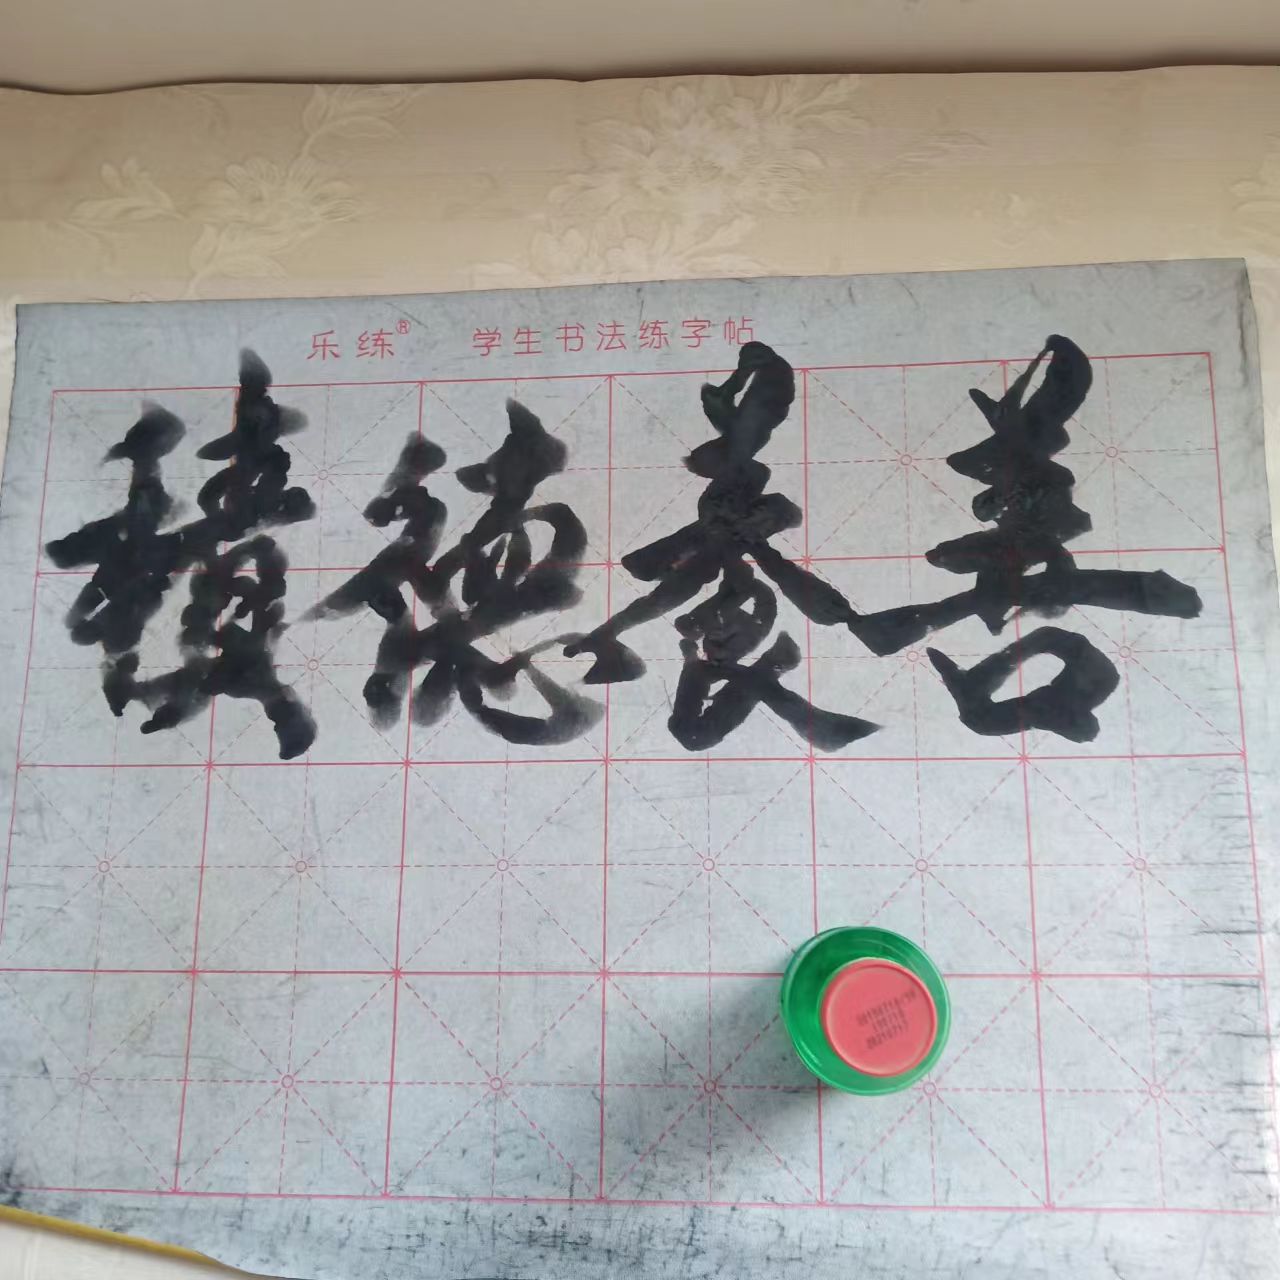 乐练® 学生书法练字帖
積德養善